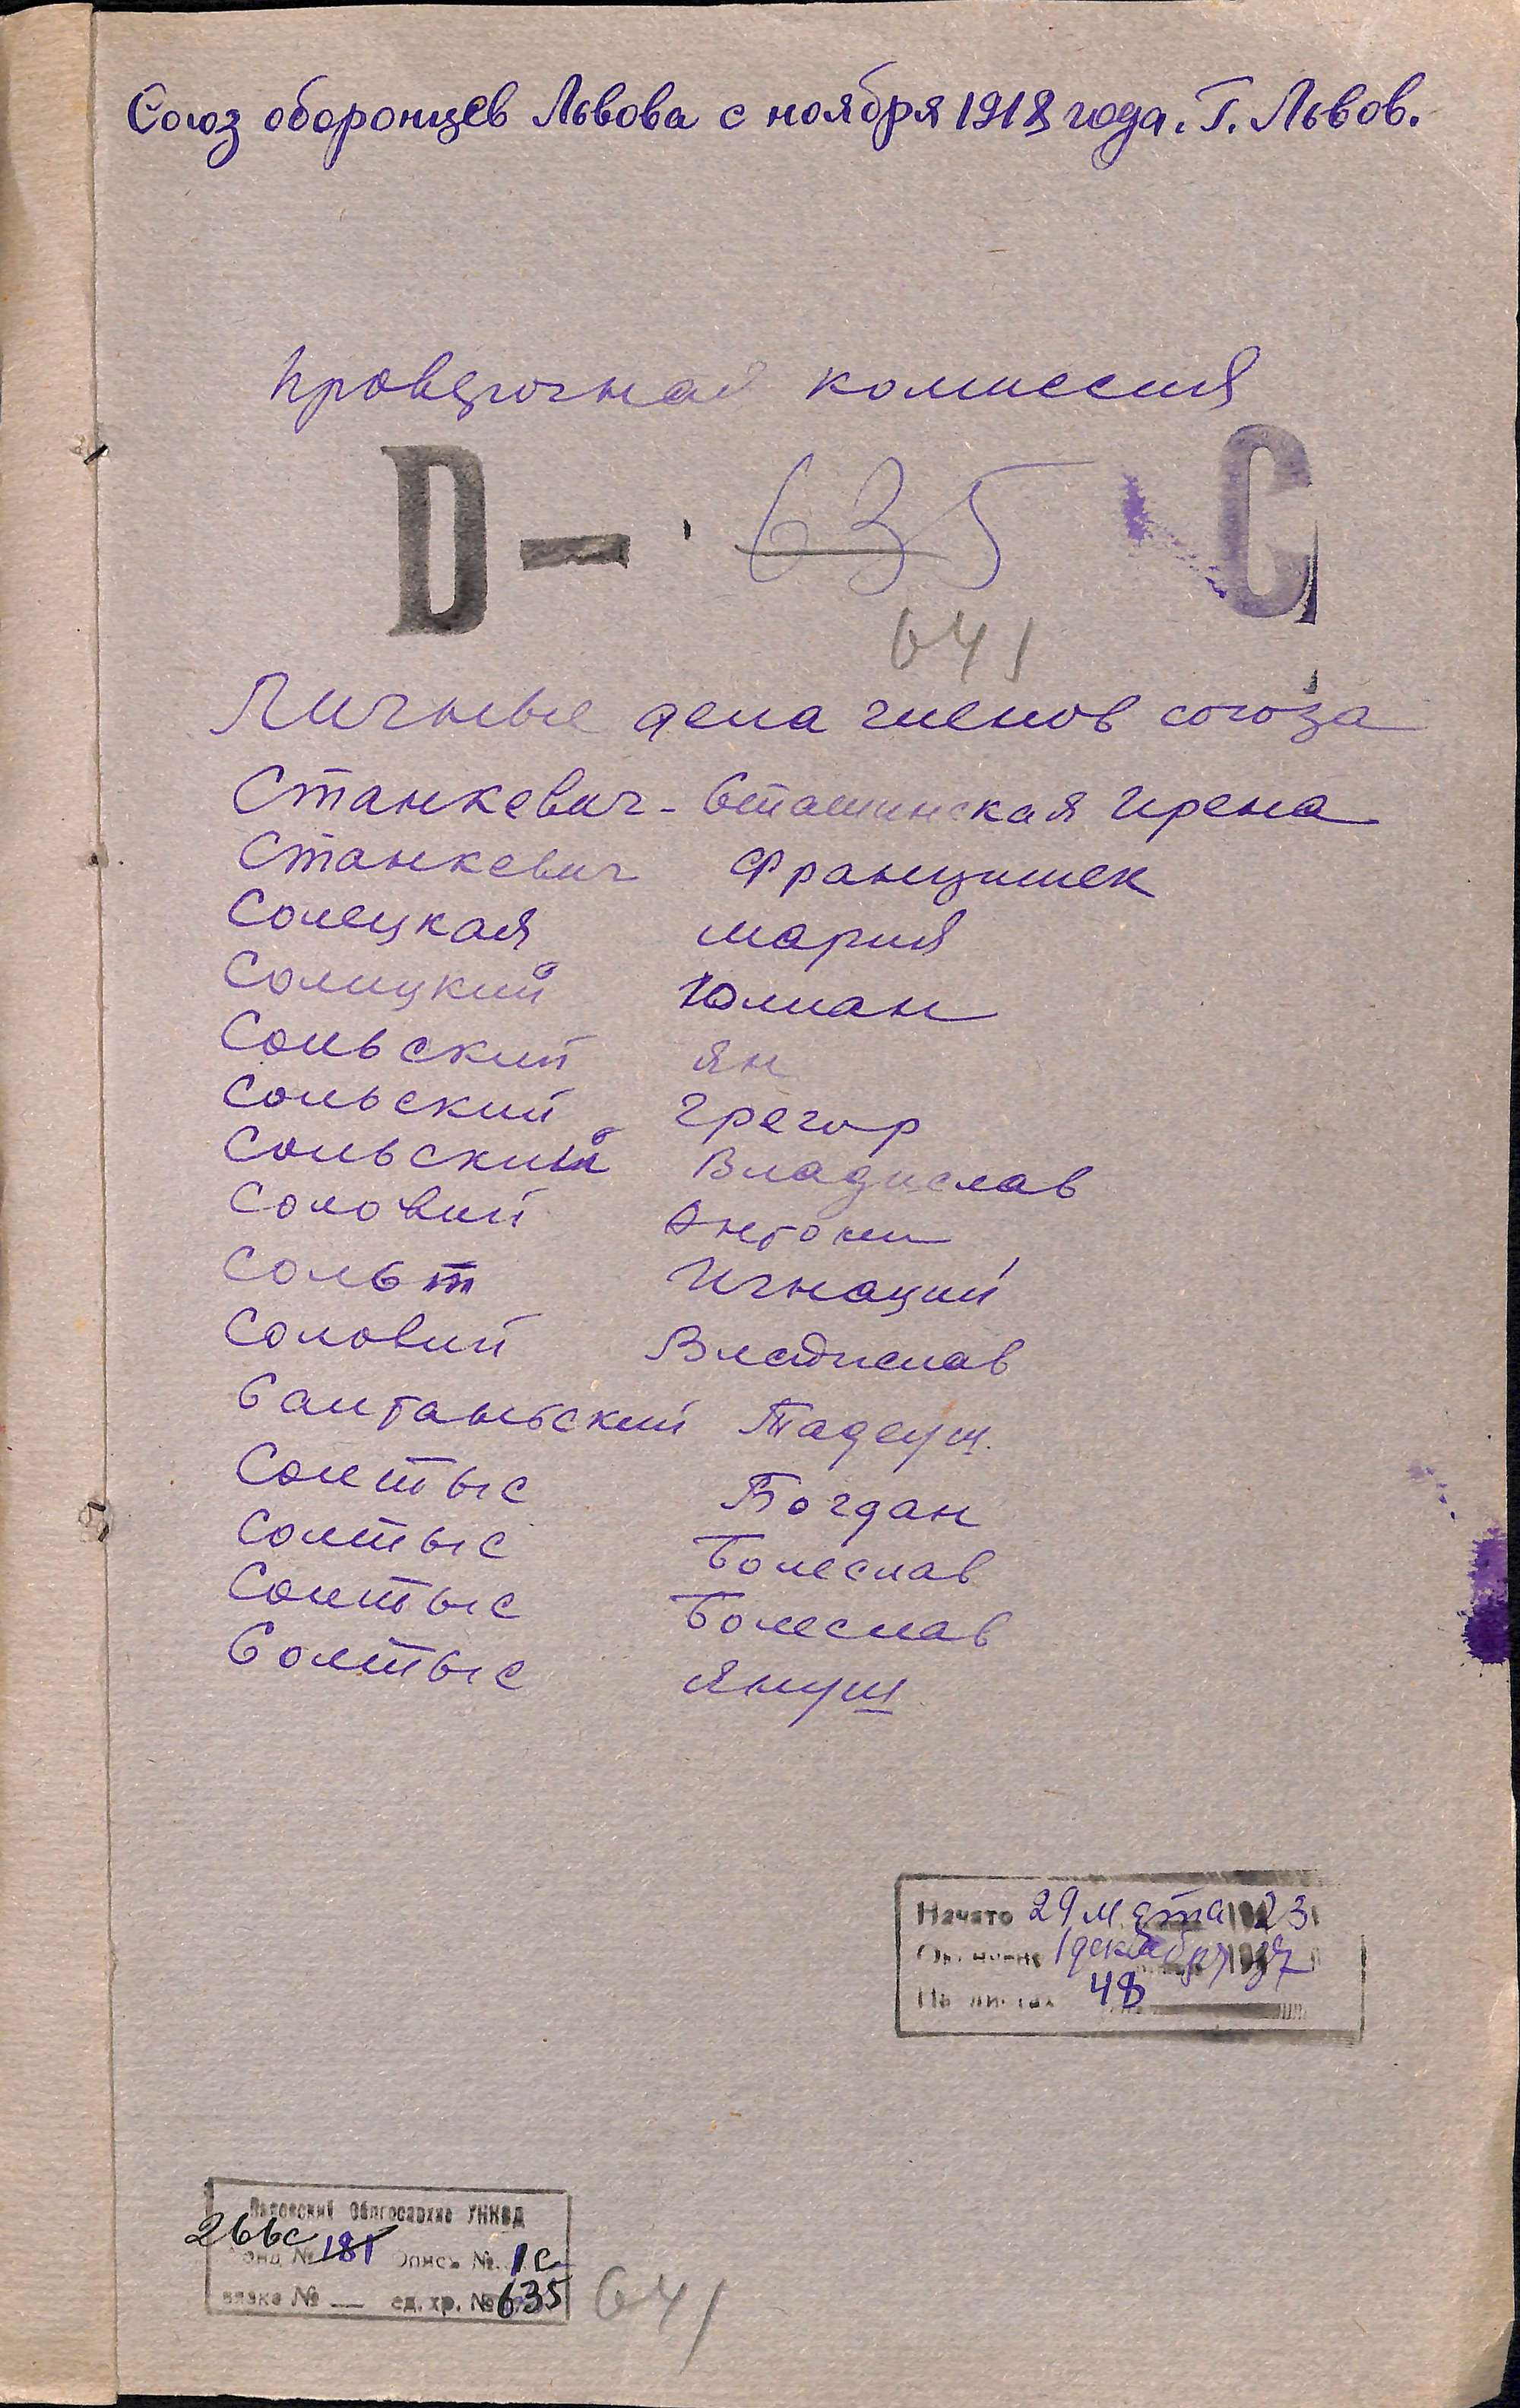 Союз оборонцев Львова с ноября 1918 года. Г. Львов.
проверочная комиссия
D — 635 С
641
Личные дела членов союза
Станкевич - Сташинская Ирена
Станкевич Францишек
Солецкая Мария
Солицкий Юлиан
Сольский Ян
Сольский Грегор
Сольский Владислав
Соловий Антони
Сольт Игнаций
Соловий Владислав
Салтаньский Тадеуш
Солтыс Богдан
Солтыс Болеслав
Солтыс Болеслав
Солтыс Януш
Начато 29 марта 1923
Окончено 1 декабря 1937
На листах 48
Львовский Облгосархив УНКВД
266с
Фонд № 181 Опись № 1с
вязка № — ед. хр. № 635
641